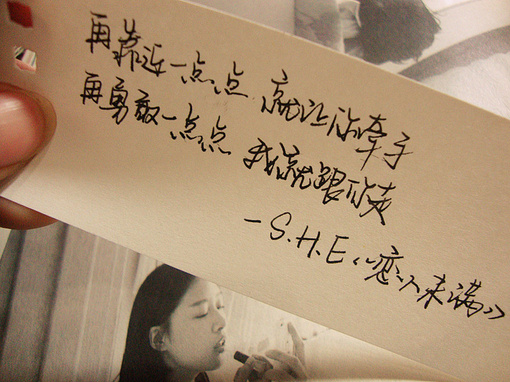 再靠近一点点 就让你牵手
再勇敢一点点 我就跟你走
－S.H.E《恋人未满》